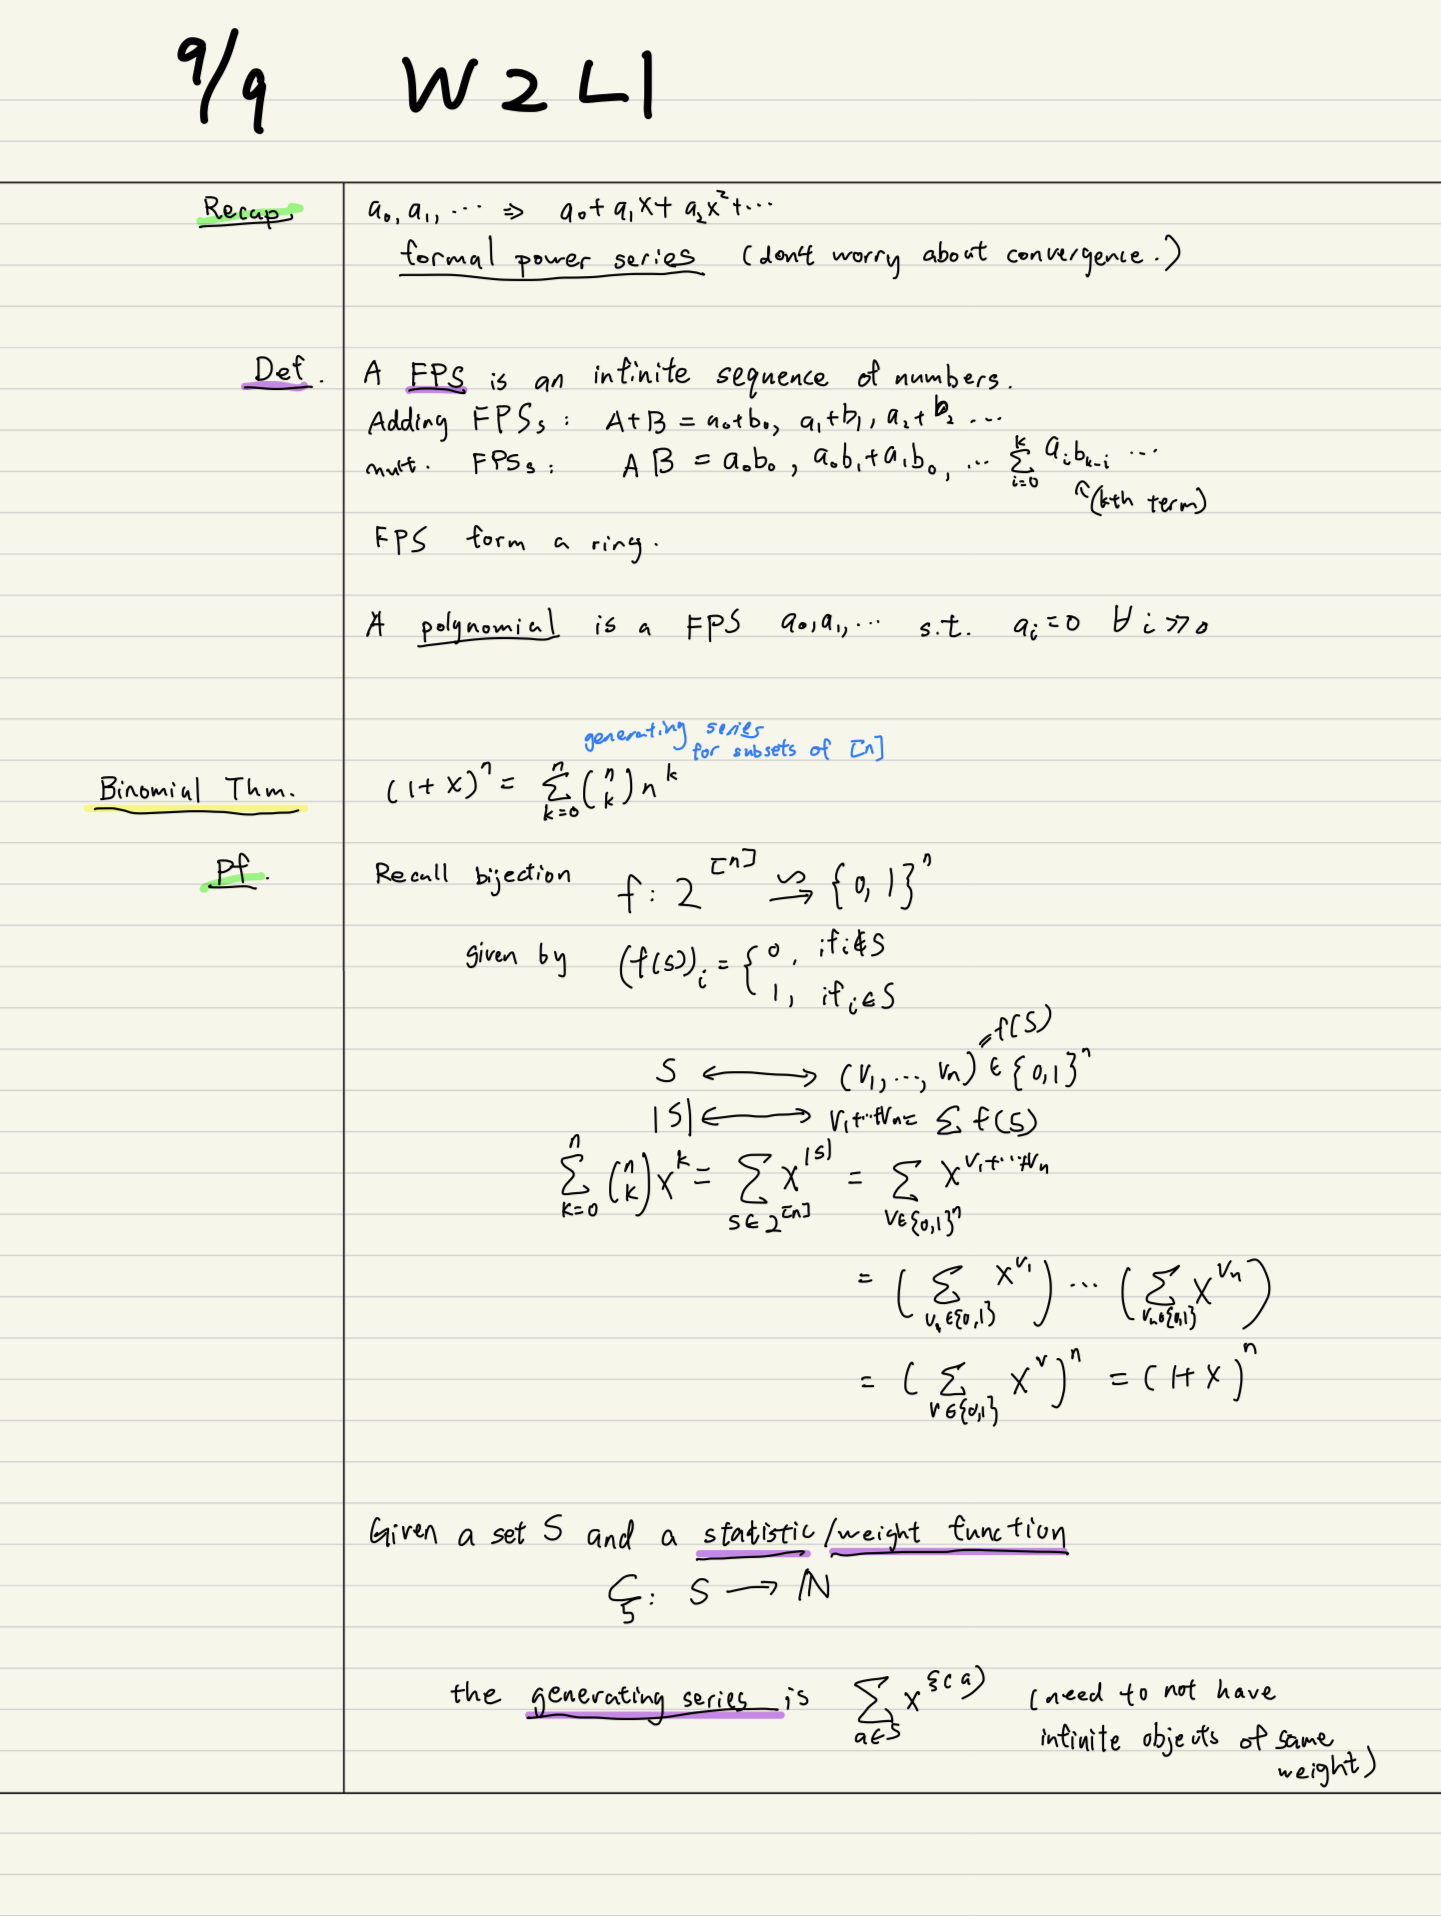 9/9 W2L1
Recap. a₀, a₁, ... ⇒ a₀ + a₁x + a₂x² + ...
formal power series (don't worry about convergence.)
Def. A FPS is an infinite sequence of numbers.
Adding FPSs: A+B = a₀+b₀, a₁+b₁, a₂+b₂ ...
mult. FPSs: AB = a₀b₀, a₀b₁+a₁b₀, ... ∑_{i=0}^{k} a_i b_{k-i} ...
↖(kth term)
FPS form a ring.
A polynomial is a FPS a₀,a₁,... s.t. a_i=0 ∀i≫0
generating series
for subsets of [n]
Binomial Thm. (1+x)^n = ∑_{k=0}^{n} (n k) n^k
Pf. Recall bijection f: 2^{[n]} ⥲ {0,1}^n
given by (f(S))_i = { 0, if i∉S
1, if i∈S
=f(S)
S ⟷ (v₁,...,v_n) ∈ {0,1}^n
|S| ⟷ v₁+...+v_n = ∑ f(S)
∑_{k=0}^{n} (n k) x^k = ∑_{S∈2^{[n]}} x^{|S|} = ∑_{v∈{0,1}^n} x^{v₁+...+v_n}
= (∑_{v₁∈{0,1}} x^{v₁}) ... (∑_{v_n∈{0,1}} x^{v_n})
= (∑_{v∈{0,1}} x^v)^n = (1+x)^n
Given a set S and a statistic/weight function
ξ: S → ℕ
the generating series is ∑_{a∈S} x^{ξ(a)} (need to not have
infinite objects of same
weight)